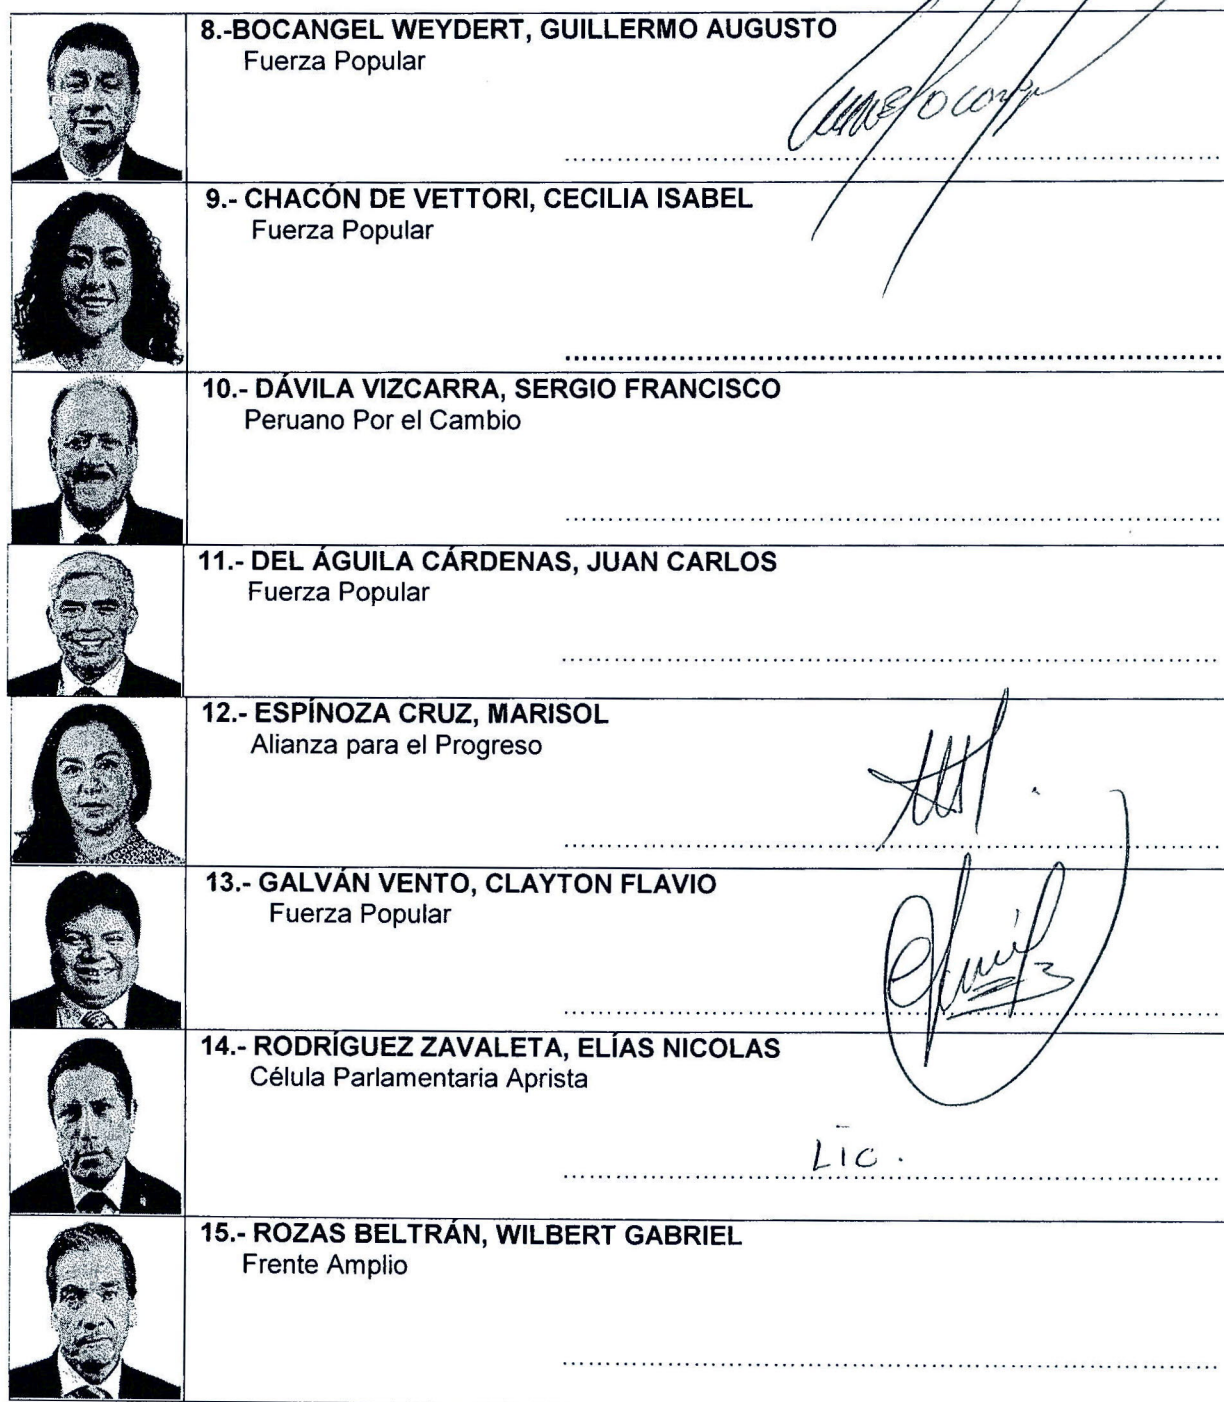 8.-BOCANGEL WEYDERT, GUILLERMO AUGUSTO
Fuerza Popular
9.- CHACÓN DE VETTORI, CECILIA ISABEL
Fuerza Popular
10.- DÁVILA VIZCARRA, SERGIO FRANCISCO
Peruano Por el Cambio
11.- DEL ÁGUILA CÁRDENAS, JUAN CARLOS
Fuerza Popular
12.- ESPÍNOZA CRUZ, MARISOL
Alianza para el Progreso
13.- GALVÁN VENTO, CLAYTON FLAVIO
Fuerza Popular
14.- RODRÍGUEZ ZAVALETA, ELÍAS NICOLAS
Célula Parlamentaria Aprista
Lic.
15.- ROZAS BELTRÁN, WILBERT GABRIEL
Frente Amplio